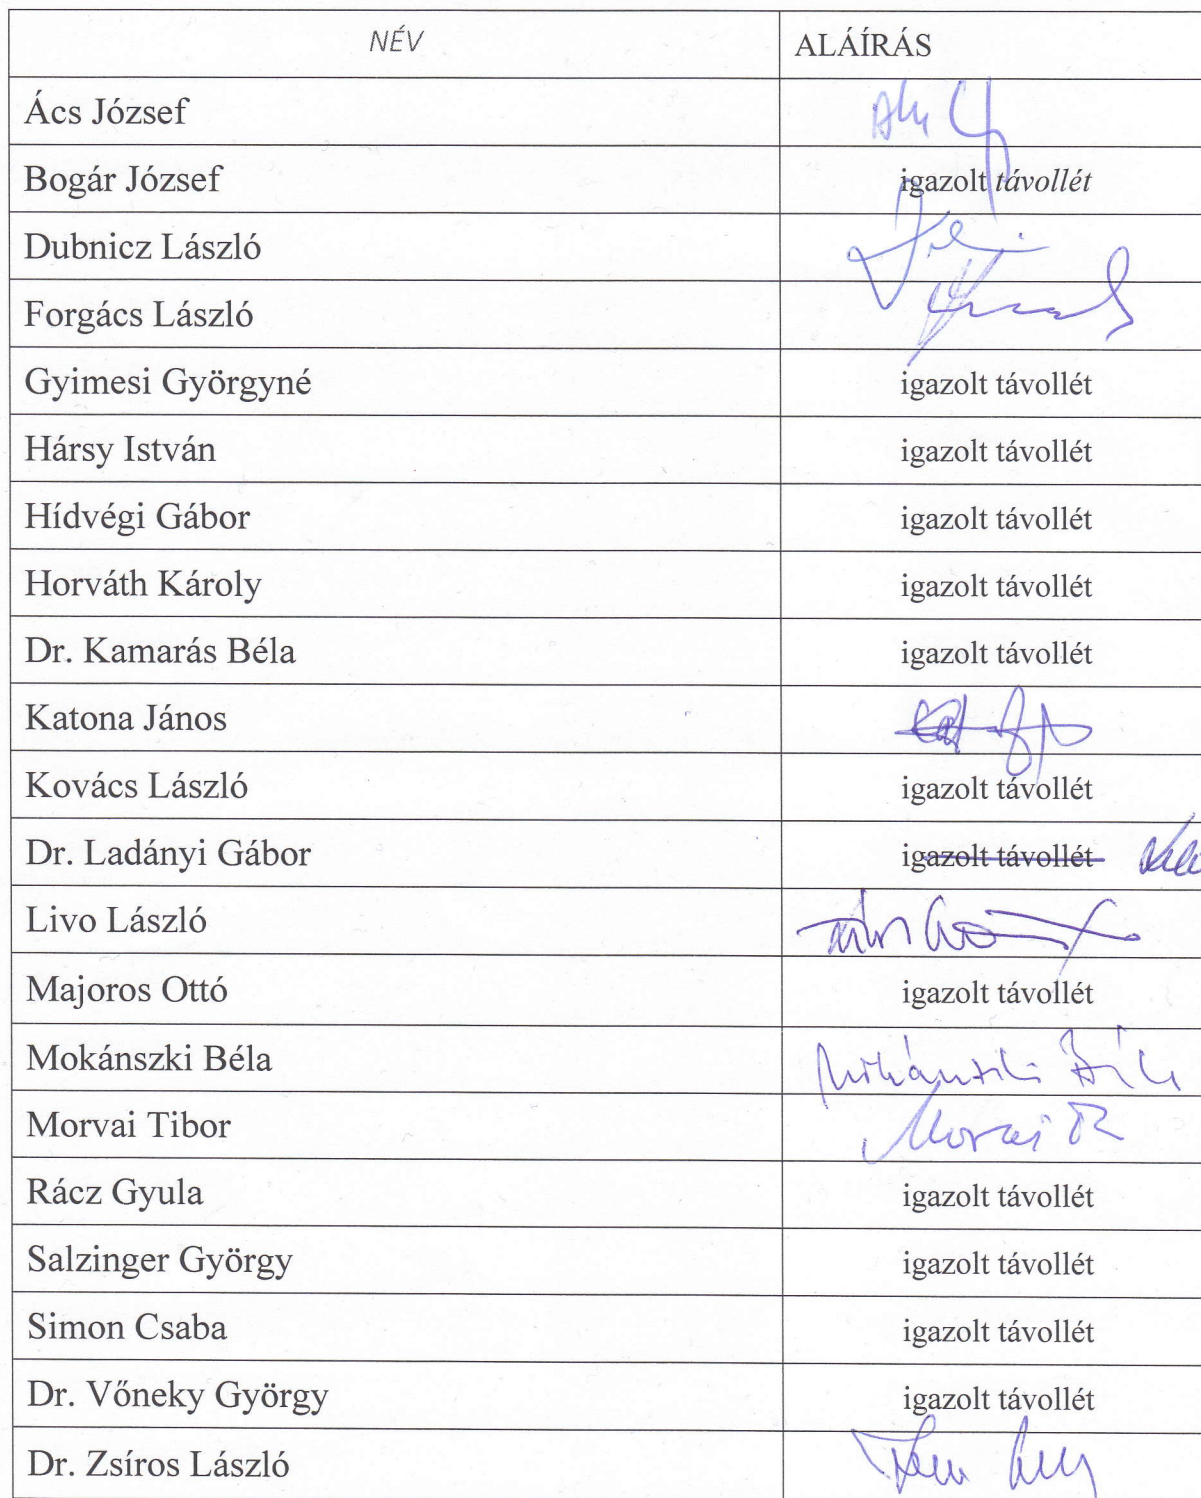 NÉV ALÁÍRÁS
Ács József
Bogár József igazolt távollét
Dubnicz László
Forgács László
Gyimesi Györgyné igazolt távollét
Hársy István igazolt távollét
Hídvégi Gábor igazolt távollét
Horváth Károly igazolt távollét
Dr. Kamarás Béla igazolt távollét
Katona János
Kovács László igazolt távollét
Dr. Ladányi Gábor igazolt távollét
Livo László
Majoros Ottó igazolt távollét
Mokánszki Béla Mokánszki Béla
Morvai Tibor Morvai
Rácz Gyula igazolt távollét
Salzinger György igazolt távollét
Simon Csaba igazolt távollét
Dr. Vőneky György igazolt távollét
Dr. Zsíros László